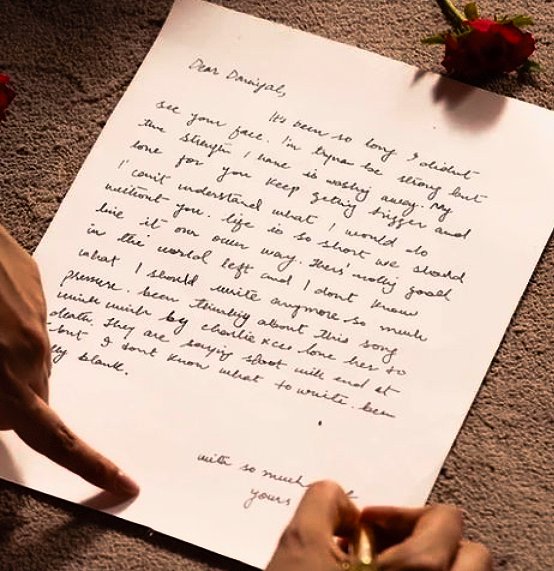 Dear Daniyal,
It's been so long I didn't
see your face. I'm tryna be strong but
the strength I have is wasting away. My
love for you keep getting bigger and
I can't understand what I would do
without you. life is so short we should
live it our own way. There's nothing good
in the world left and I dont know
what I should write anymore so much
pressure. been thinking about this song
by charlie xcx love her to
death. They are saying shoot milk end at
but I dont know what to write. been
blank.
with so much
yours